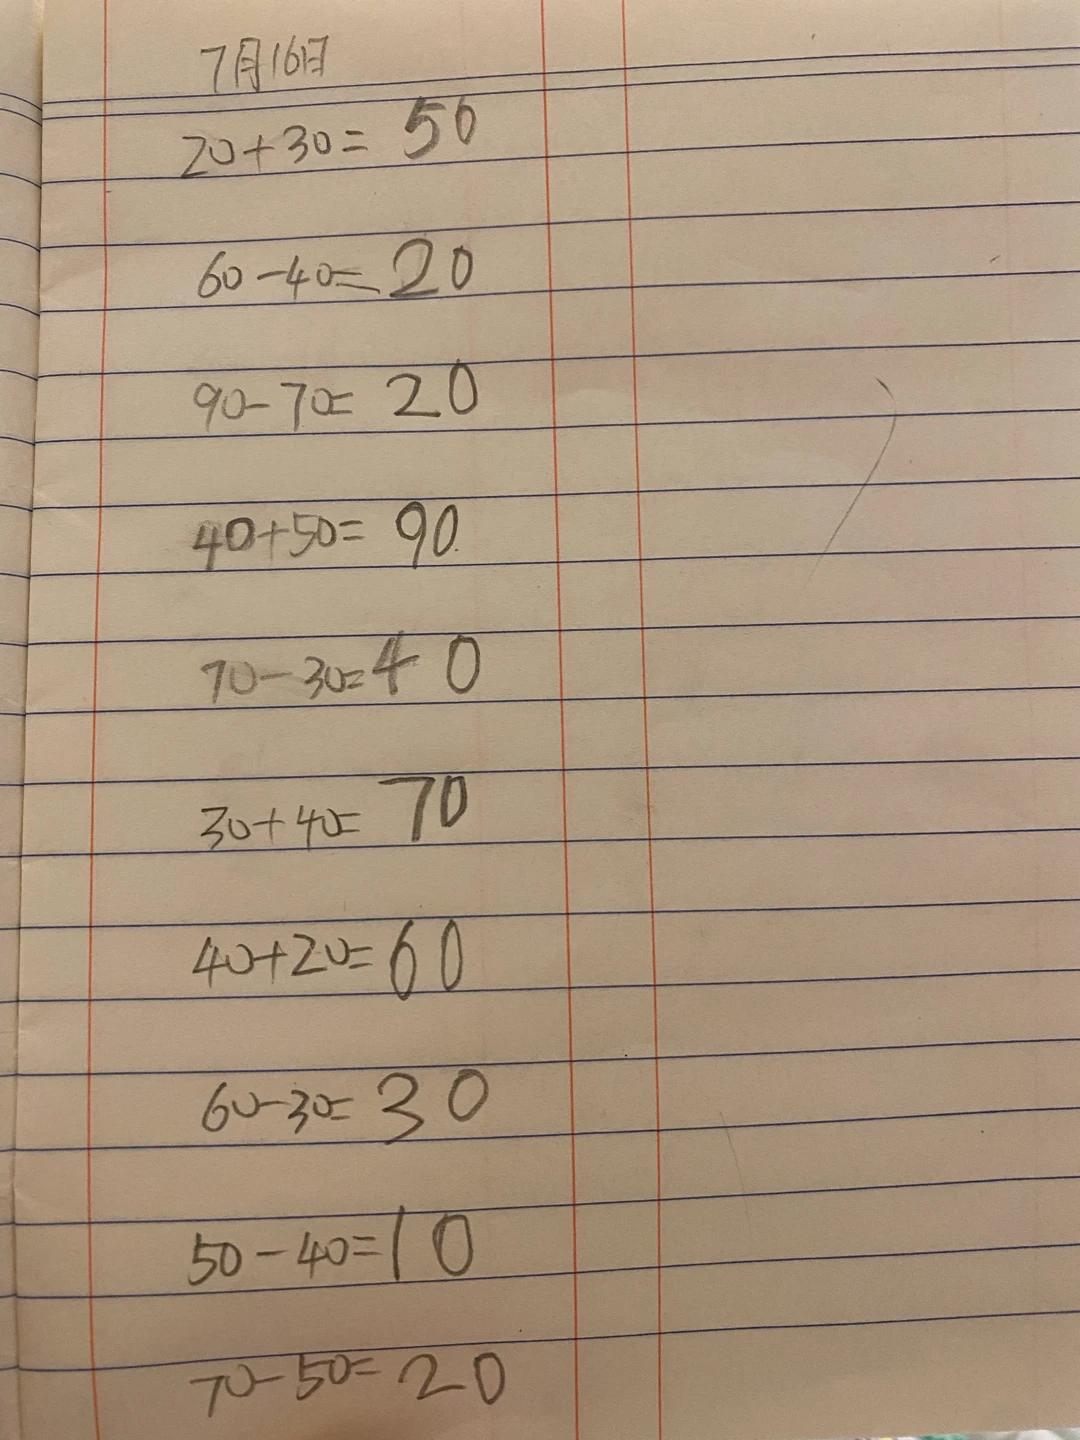 7月16日
20+30=50
60-40=20
90-70=20
40+50=90
70-30=40
30+40=70
40+20=60
60-30=30
50-40=10
70-50=20